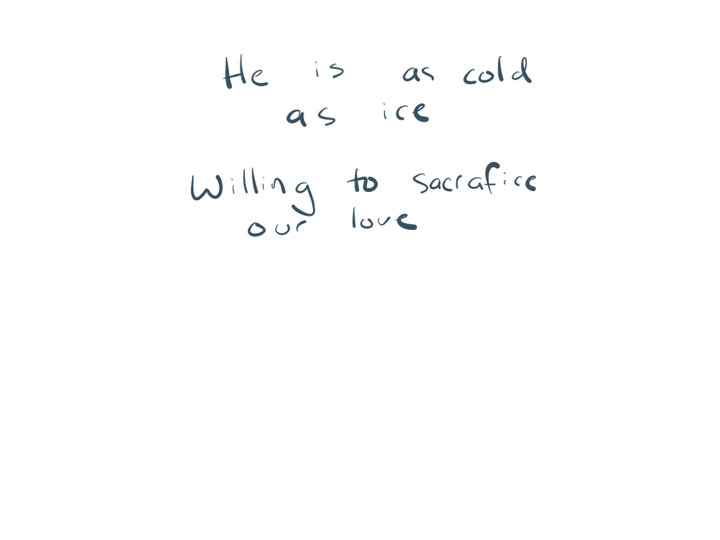 He is as cold
as ice
Willing to sacrafice
our love